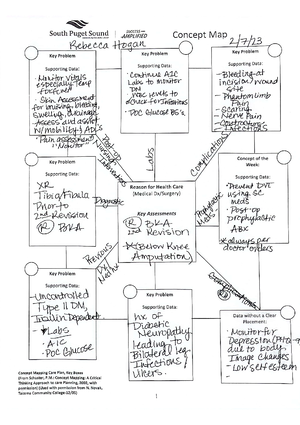 South Puget Sound
AMPLIFIED
Concept Map
Rebecca Hogan
2/7/23
Key Problem
Supporting Data:
- Monitor vitals
especially Temp
for Fever
- Skin Assessment
for bruising, bleeding,
swelling, drainage
- Access and assist
w/mobility & ADL's
- Pain assessment
Monitor
Key Problem
Supporting Data:
- Continue A1C
Labs to monitor
DM
- WBC levels to
for infections
- POC Glucose BS's.
Key Problem
Supporting Data:
- Bleeding at
incision/wound
site
- Phantom Limb
Pain
- Scarring
- Nerve Pain
- Contractures
- Infections
Post-op
Interventions
Labs
Complications
Key Problem
Supporting Data:
XR
Tibia/Fibula
Prior to
2nd Revision
R BKA
Diagnostic
Reason for Health Care
(Medical Dx/Surgery)
Key Assessments
R BKA
2nd Revision
* Below Knee
Amputation
Prophylactic
Meds
Concept of the
Week:
Supporting Data:
- Prevent DVT
using SC
meds
- Post-op
prophylactic
ABX
* always per
doctor orders
Previous
Key Problem
Supporting Data:
- Uncontrolled
Type II DM,
Insulin Dependent
Labs
- A1C
- POC Glucose
Key Problem
Supporting Data:
hx of
Diabetic
Neuropathy
leading to
Bilateral leg
Infections/
Ulcers.
Data without a Clear
Placement:
- Monitor for
Depression
due to body
Image Changes
- Low self esteem
Concept Mapping Care Plan, Key Boxes
(From Schuster, P.M.: Concept Mapping: A Critical
Thinking Approach to care Planning, 2002, with
permission) (Used with permission from N. Novak,
Tacoma Community College-12/05)
1